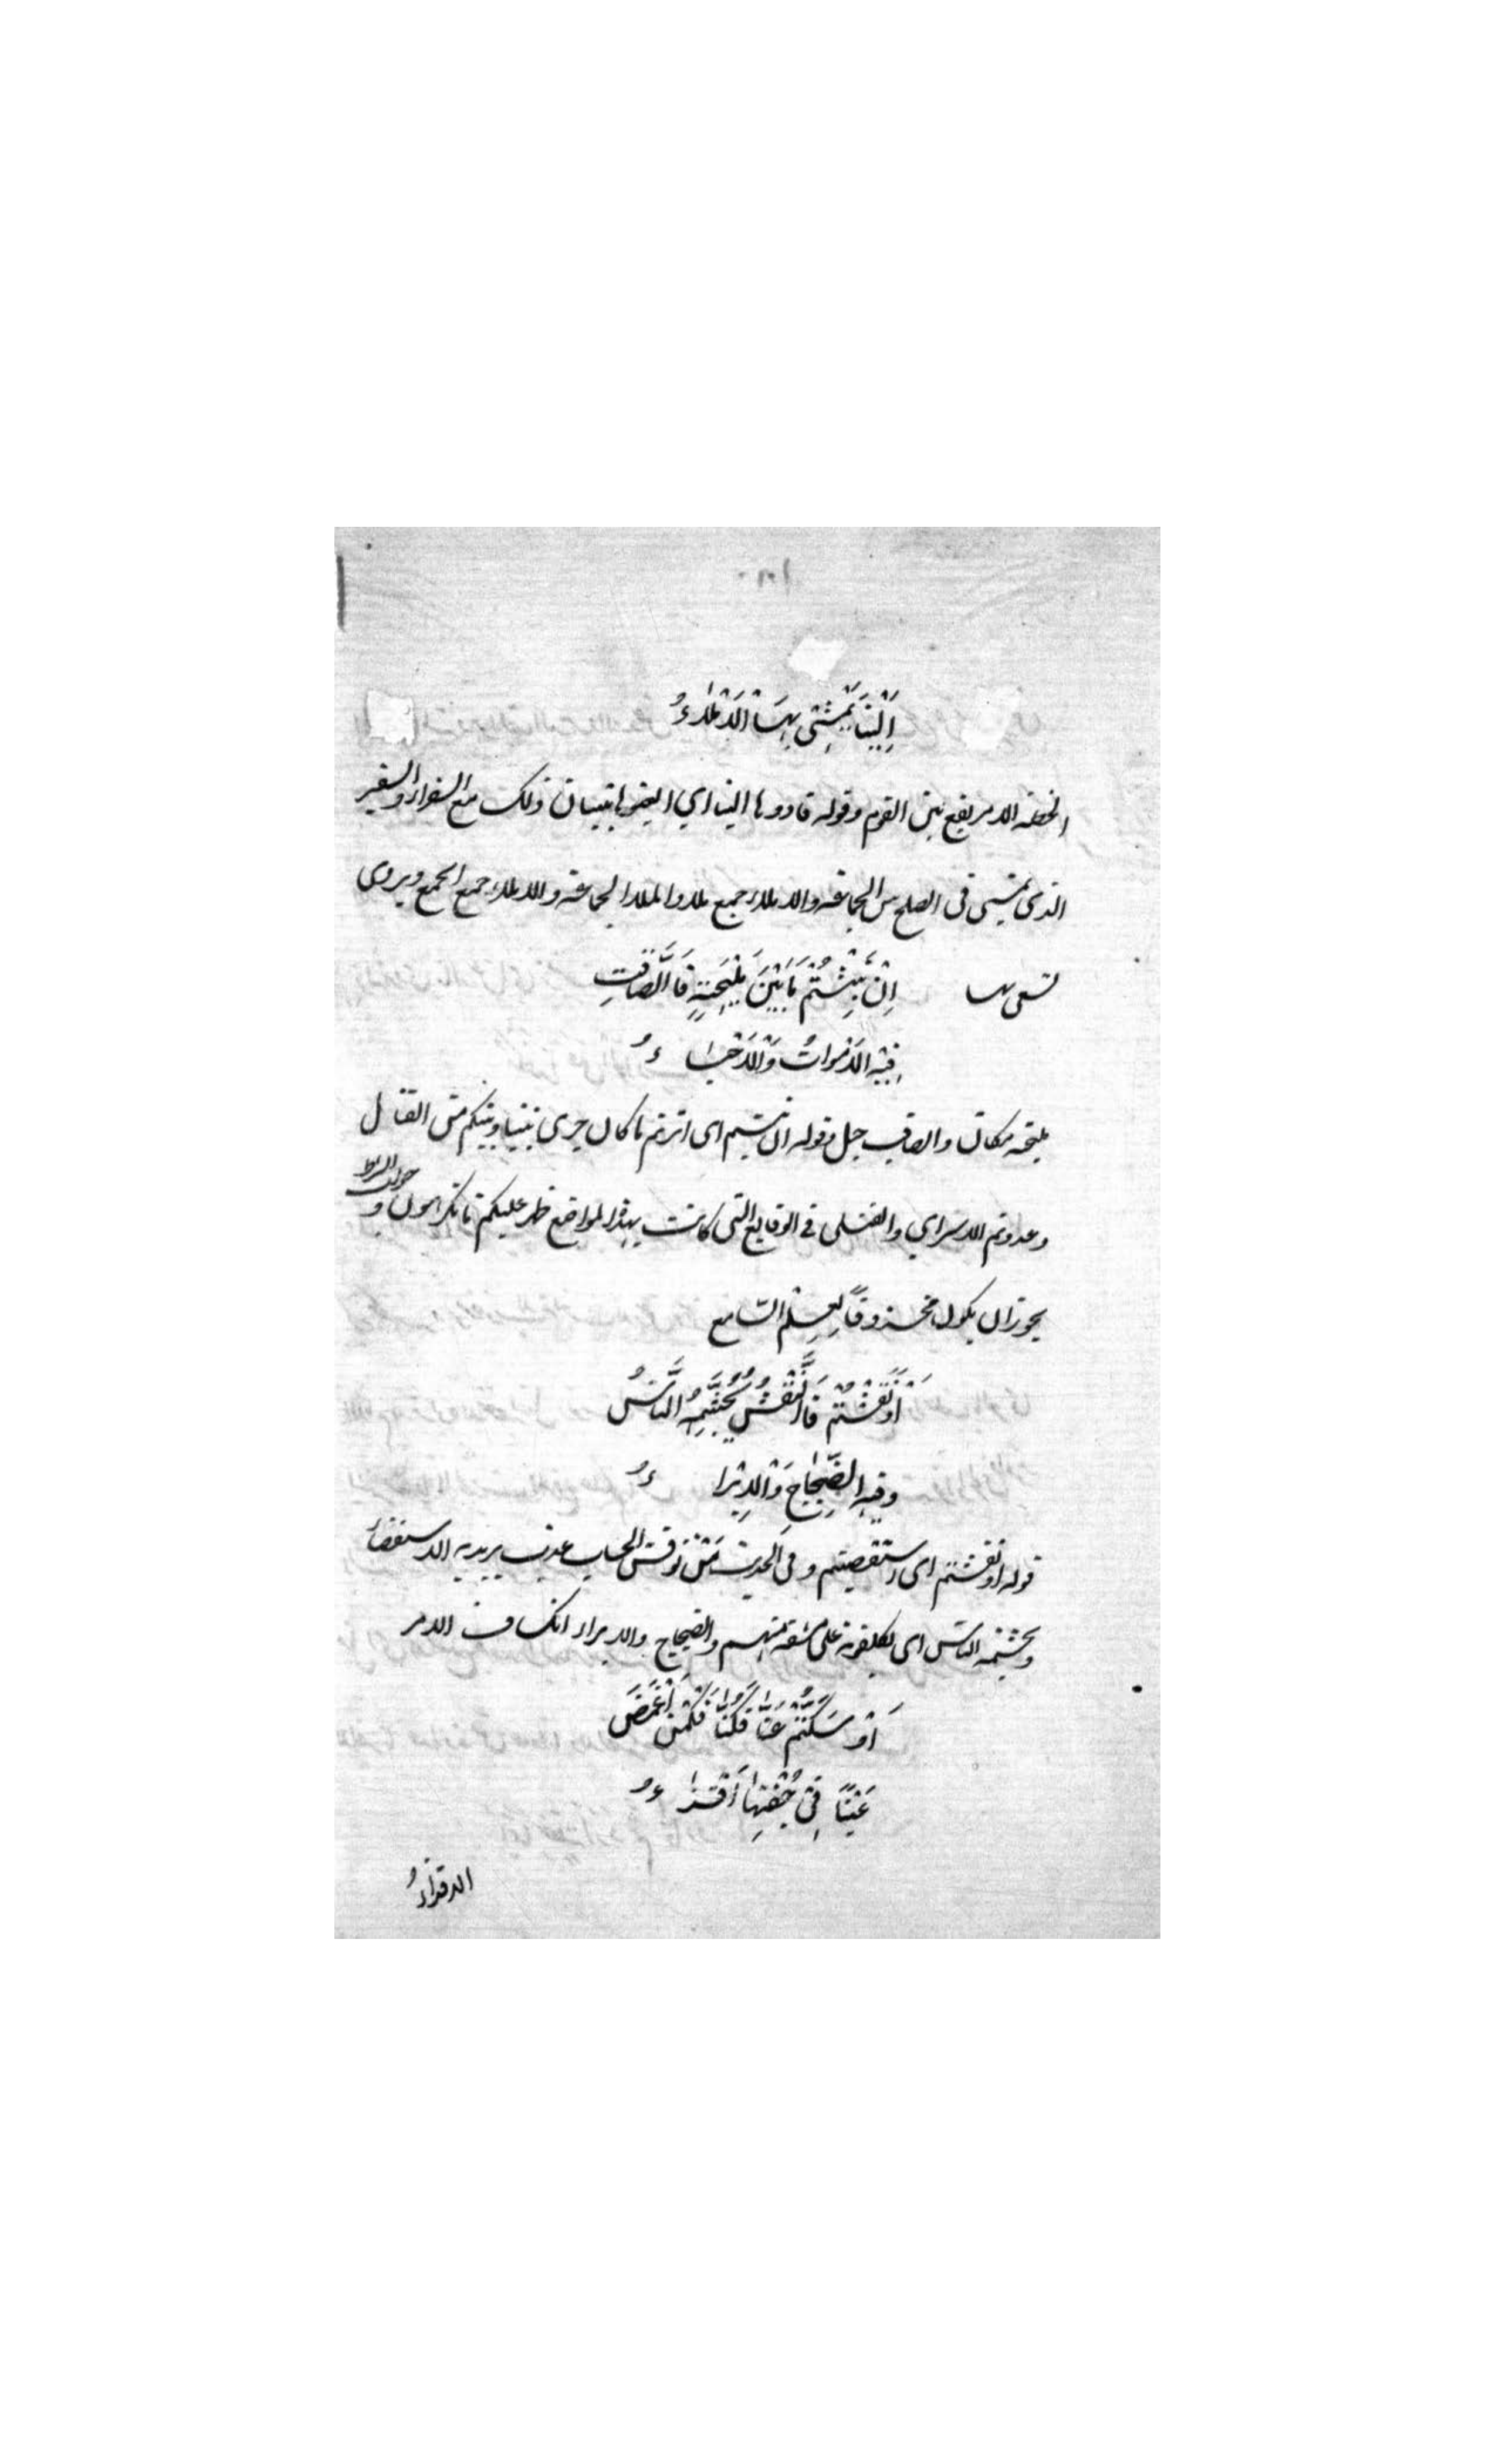 اِلَيْنَا يَمْشِيْ بِهَا الْاَمْلَاءُ
الخطة الامر يقع بين القوم وقوله فادوها الينا اي ابعثوا ببيان ذلك مع السفراء والسفير
الذي يمشي في الصلح بين الجماعة والاملاء جمع ملا والملا الجماعة والاملاء جمع الجمع ويروى
تسعى بها اِنْ نَبَشْتُمْ مَا بَيْنَ مِلْحَةٍ فَالصَّاقِبِ
فِيْهِ الْاَمْوَاتُ وَالْاَحْيَاءُ
ملحة مكان والصاقب جبل وقوله ان نبشتم اى اثرتم ما كان جرى بيننا وبينكم من القتال
وعددتم الاسراي والقتلى في الوقايع التي كانت بهذا المواضع ظهر عليكم ما تكرهون و جواب الشرط
يجوز ان يكون محذوفًا لِعِلْم السّامع
اَوْ نَقَشْتُمْ فَالنَّقْشُ يُجَشِّمُهُ النَّاسُ
وفِيْهِ الضِّجَاجُ وَالْاِبْرَاءُ
قوله او نقشتم اى استقصيتم وفي الحديث مَنْ نوقش الحساب عذب يريد به الاستقصاء
ويجشمه الناس اى يكلفونه على مشقة منهم والضجاج والابراء انكشاف الامر
اَوْ سَكَتُّمْ عَنَّا فَكُنَّا كَمَنْ اَغْمَضَ
عَيْنًا فِيْ جَفْنِهَا اَقْذَاءُ
الاقذاءُ